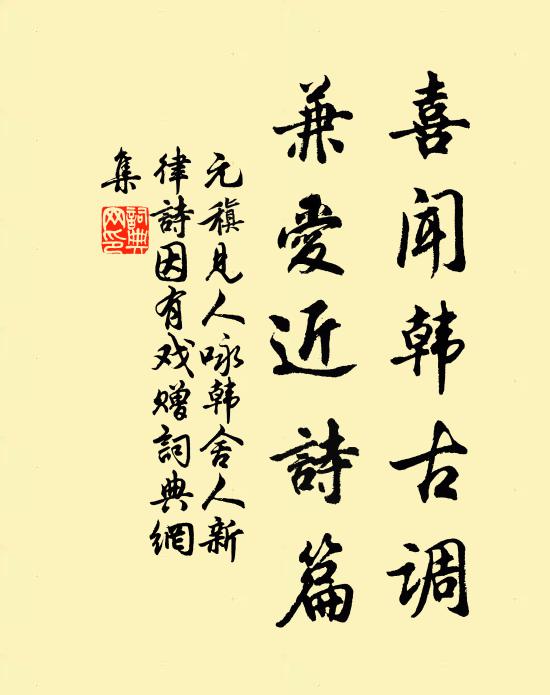 喜闻韩古调
兼爱近詩篇
元稹見人咏韩舍人新
律詩因有戏赠詞典網
集
詞典
网印